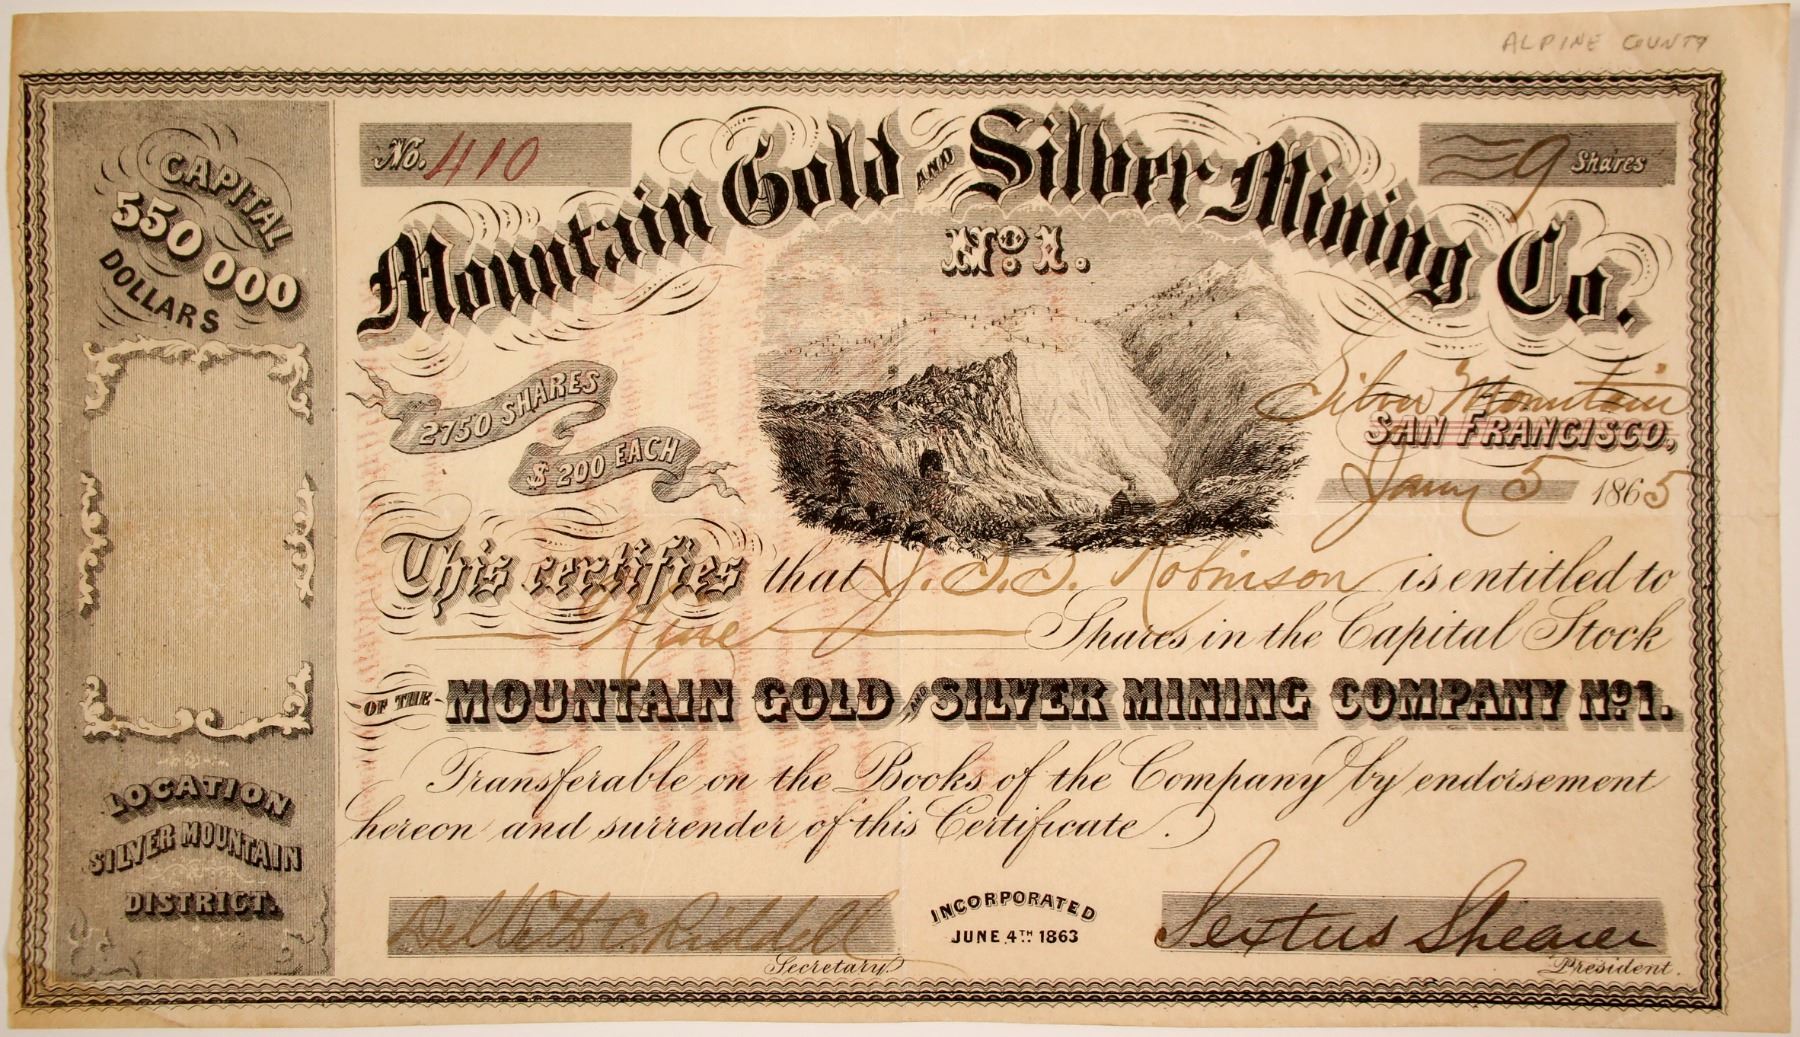 ALPINE COUNTY
CAPITAL
550 000
DOLLARS
No. 410
9 Shares
Mountain Gold AND Silver Mining Co.
No. 1.
2750 SHARES
$ 200 EACH
Silver Mountain
SAN FRANCISCO,
Jany 5 1865
This certifies that J. S. S. Robinson is entitled to
Nine Shares in the Capital Stock
OF THE MOUNTAIN GOLD AND SILVER MINING COMPANY No. 1.
Transferable on the Books of the Company by endorsement
hereon and surrender of this Certificate.
LOCATION
SILVER MOUNTAIN
DISTRICT.
DeWitt C. Riddell
Secretary.
INCORPORATED
JUNE 4TH 1863
Sextus Shearer
President.